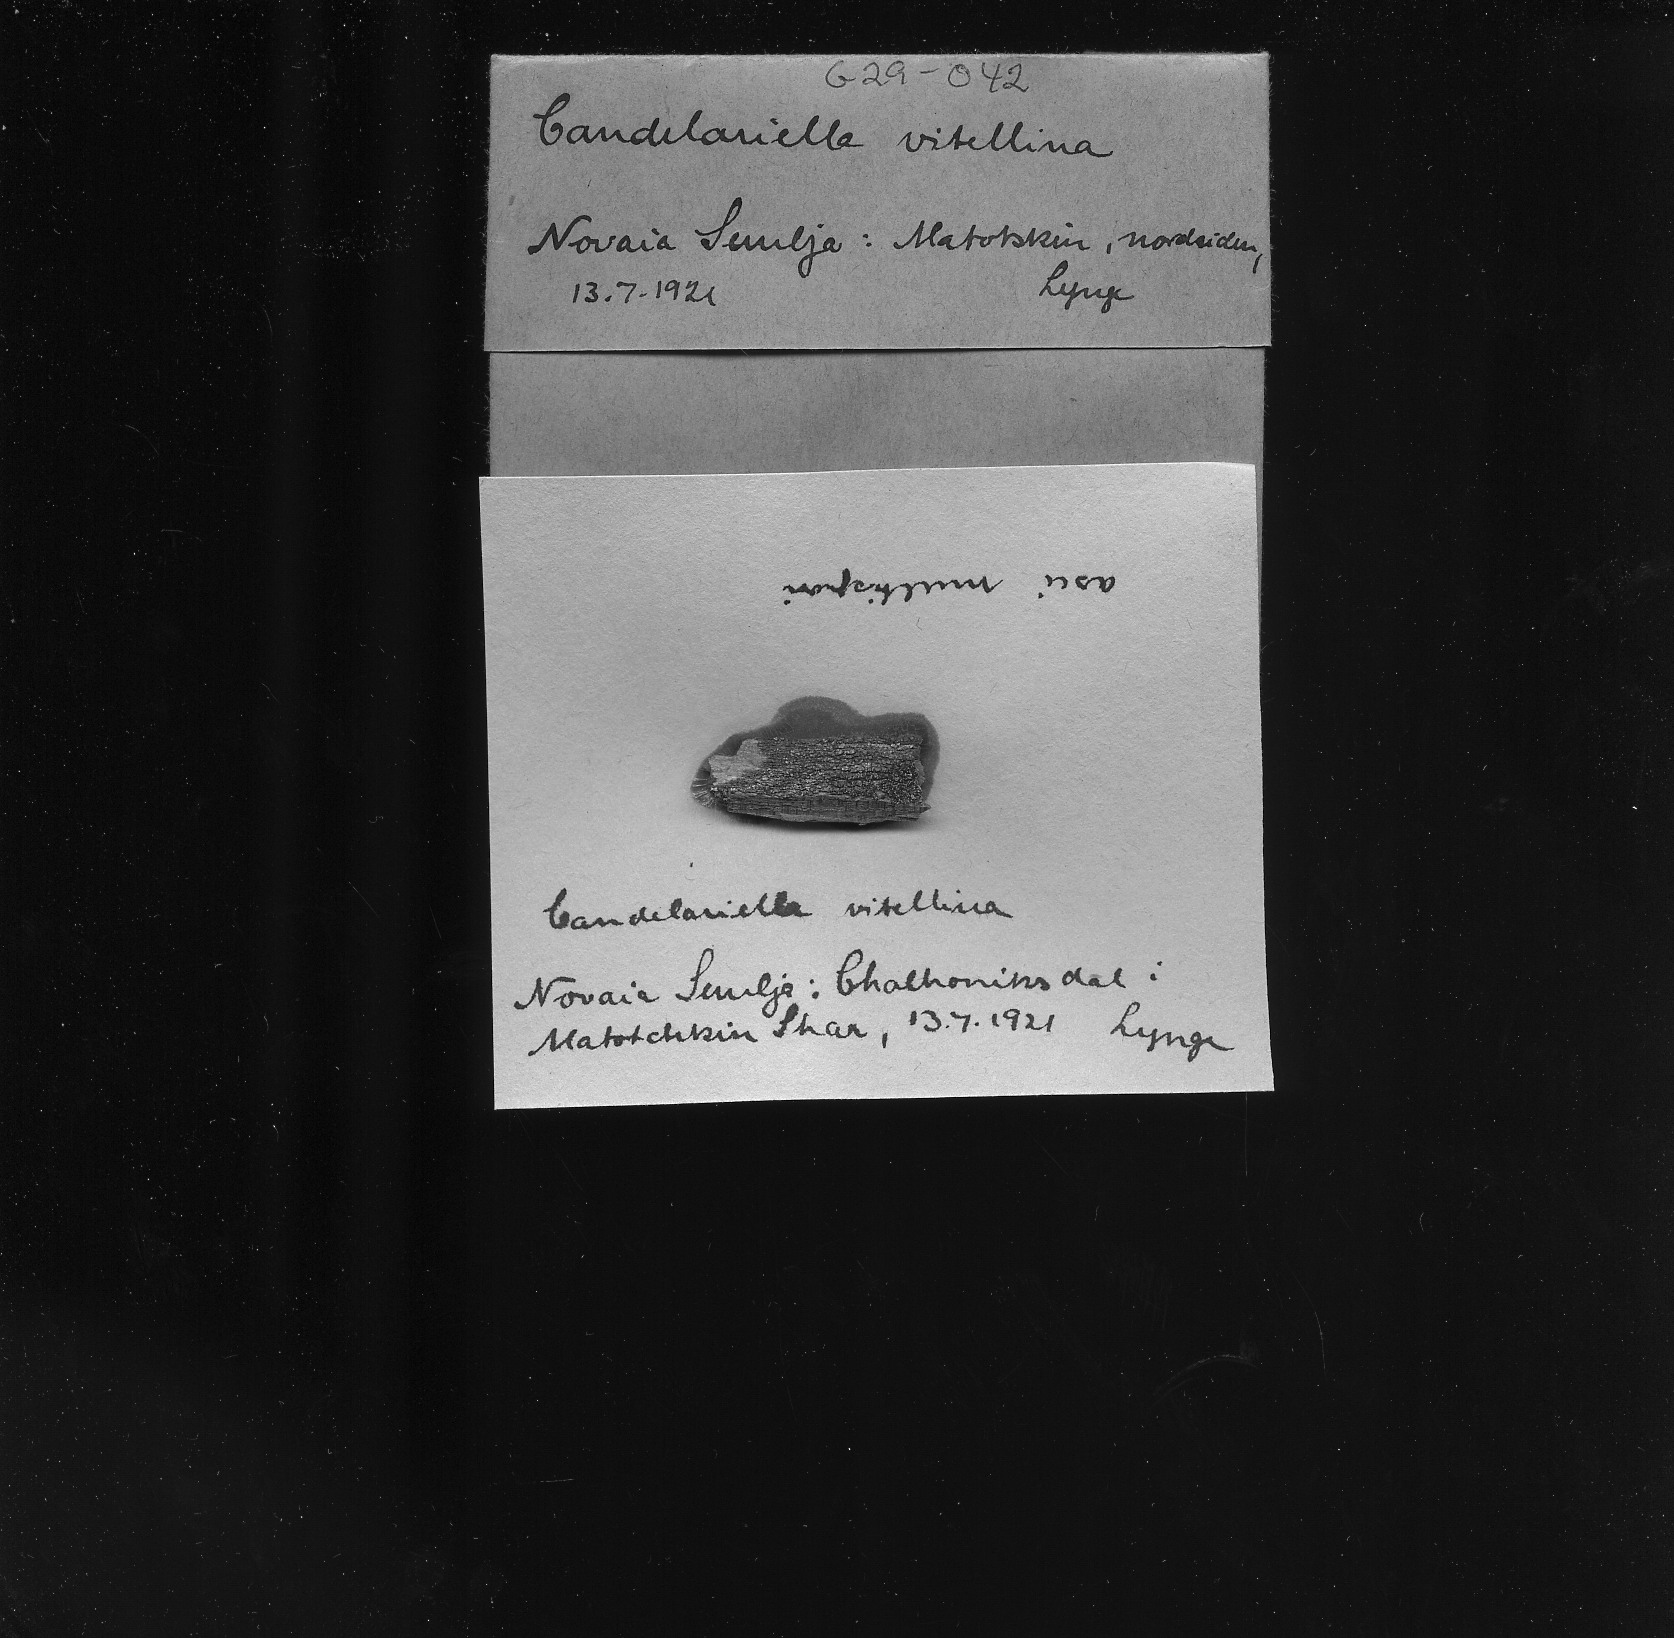 G29-042
Candelariella vitellina
Novaia Semlja: Matotskin, nordsiden,
13.7.1921 Lynge
asci multispori
Candelariella vitellina
Novaia Semlja: Chalhoniksdal i
Matotchkin Shar, 13.7.1921 Lynge